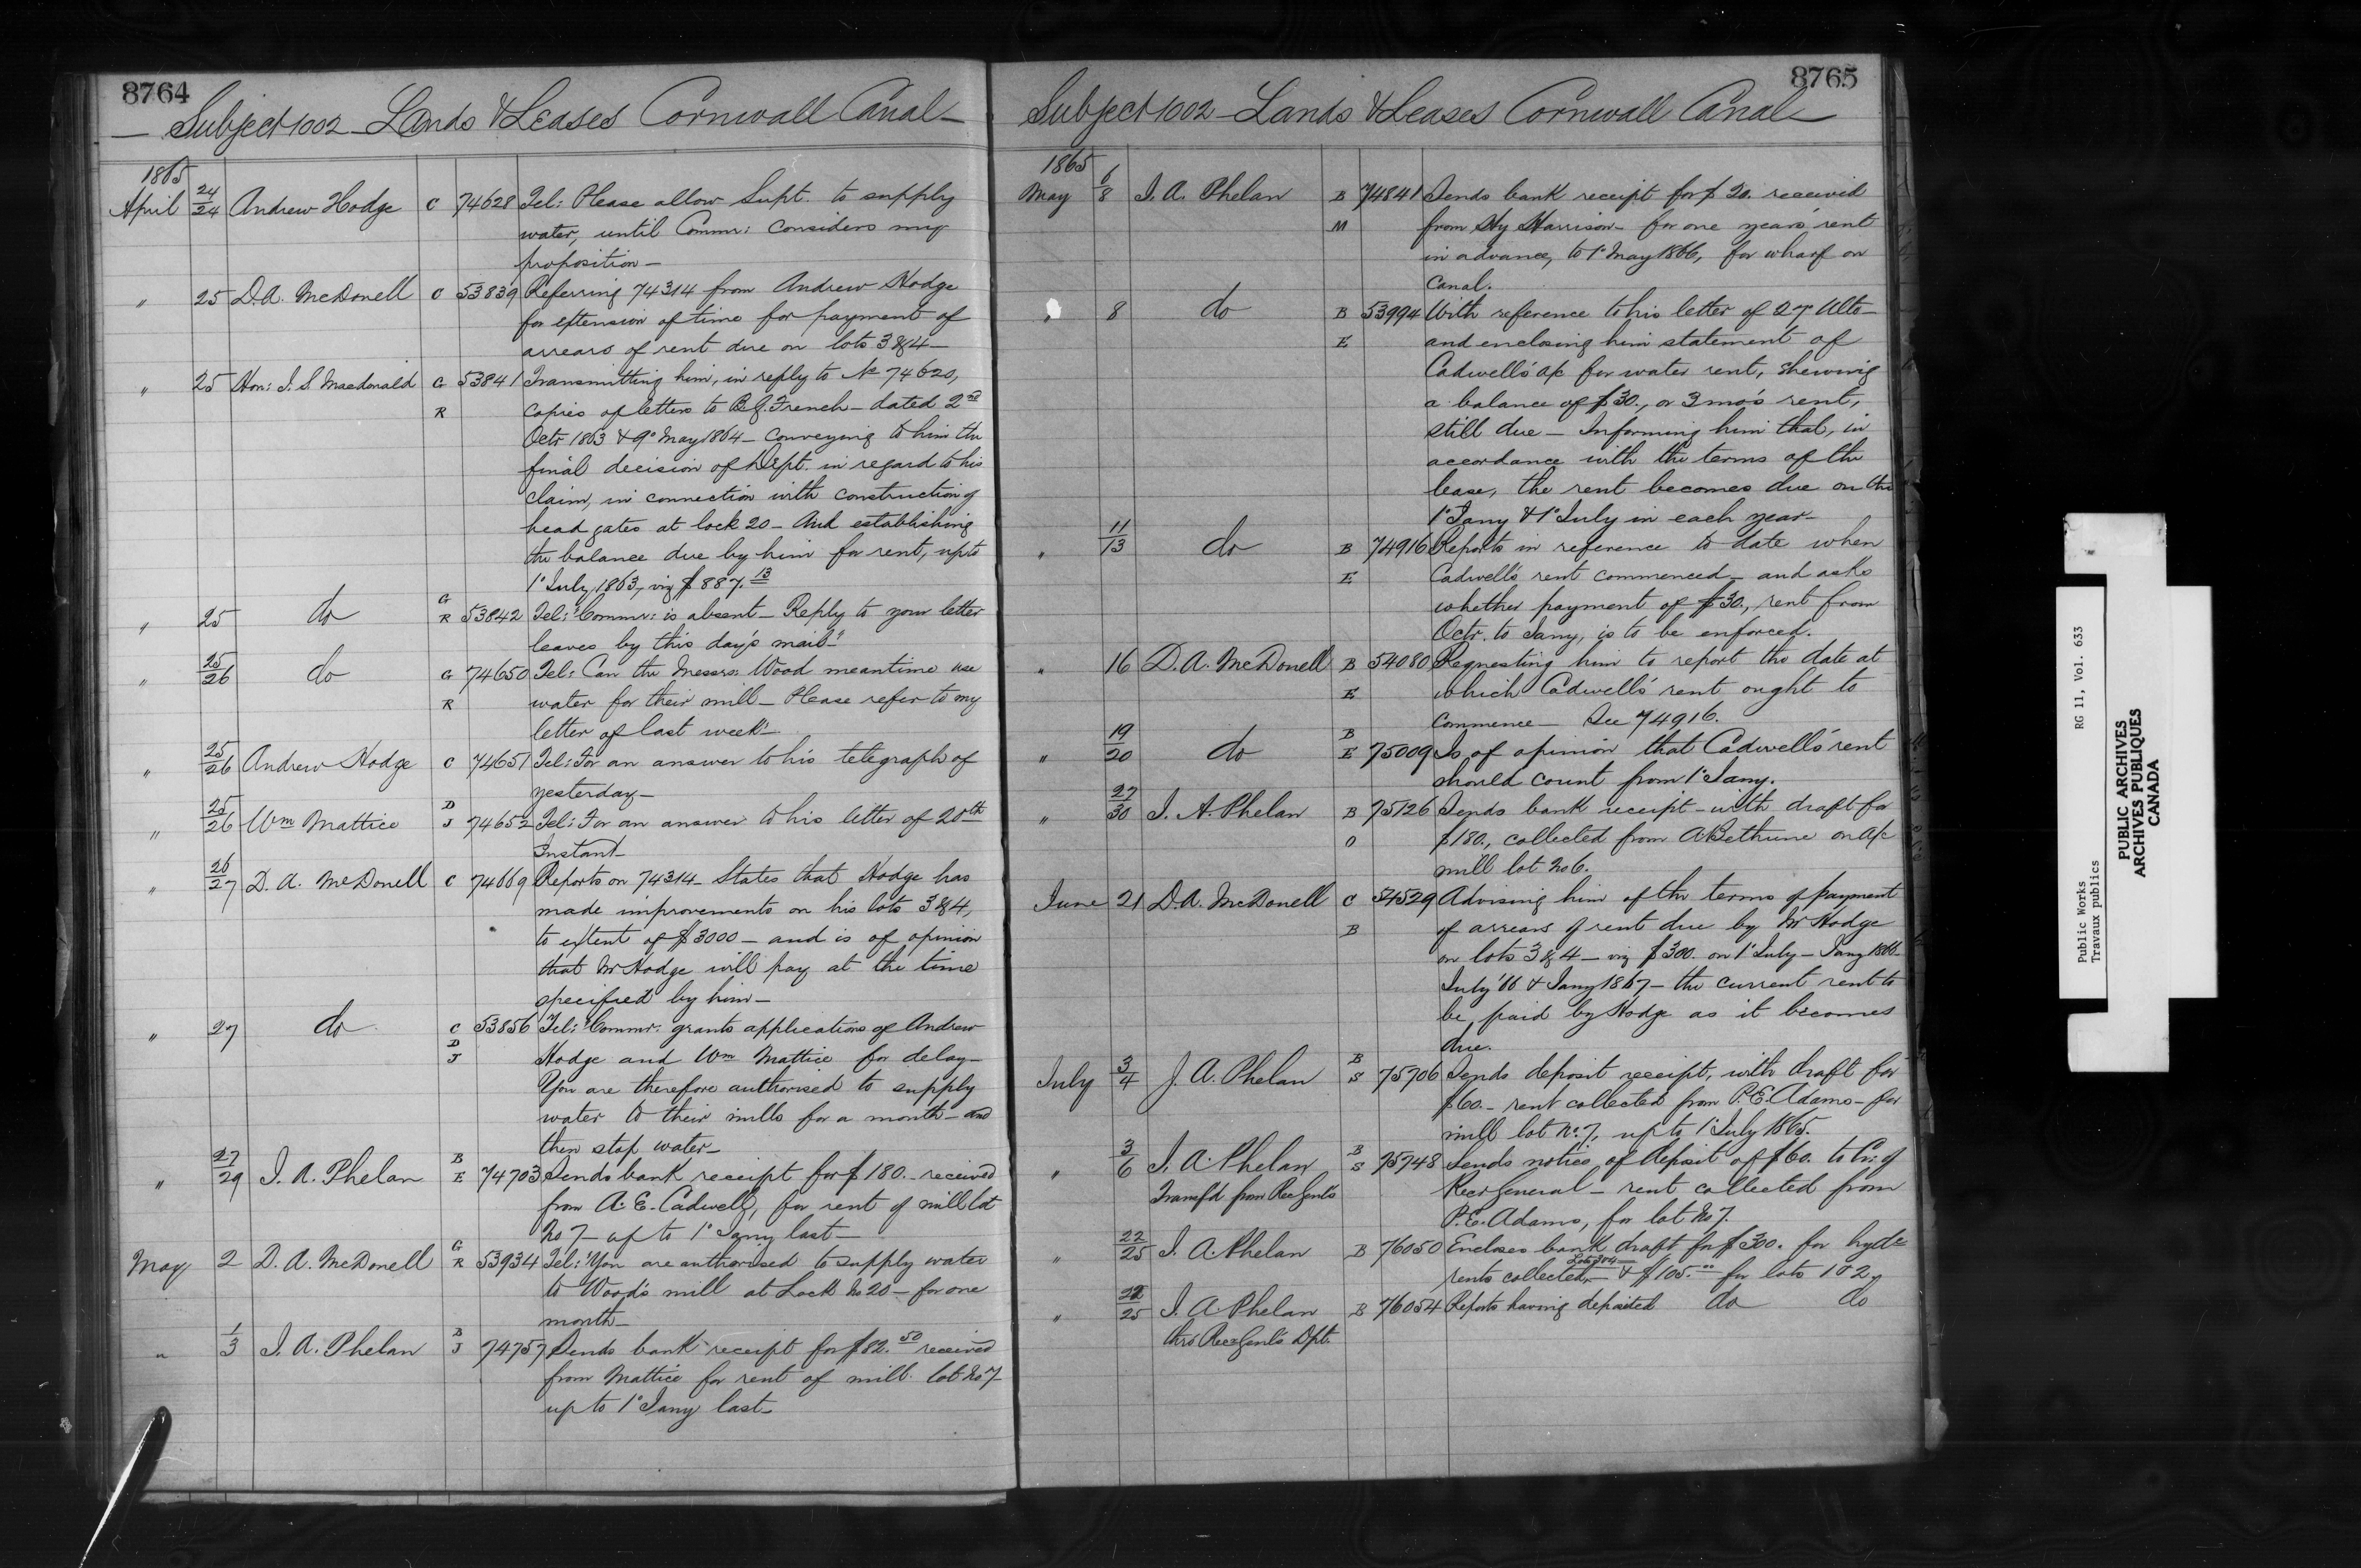 8764
Subject 1002 - Lands & Leases Cornwall Canal -
1865
April 24/24 Andrew Hodge C 74628 Tel: Please allow Supt. to supply
water, until Commr: considers my
proposition -
" 25 D.A. McDonell C 53839 Referring 74314 from Andrew Hodge
for extension of time for payment of
arrears of rent due on lots 3 & 4 -
" 25 Hon: J. S. Macdonald G 53841 Transmitting him, in reply to No 74620,
R copies of letters to B.G. French - dated 2nd
Octr 1863 & 9° May 1864 - conveying to him the
final decision of Dept. in regard to his
claim, in connection with construction of
head gates at lock 20 - And establishing
the balance due by him for rent, up to
1° July, 1863, viz $887.13
" 25 do G R 53842 Tel: "Commr: is absent - Reply to your letter
leaves by this day's mail"
" 25/26 do G 74650 Tel: Can the Messrs: Wood meantime use
R water for their mill - Please refer to my
letter of last week" -
" 25/26 Andrew Hodge C 74651 Tel: For an answer to his telegraph of
yesterday -
" 25/26 Wm Mattice D J 74652 Tel: For an answer to his letter of 20th
Instant -
" 26/27 D. A. McDonell C 74669 Reports on 74314 - States that Hodge has
made improvements on his lots 3 & 4,
to extent of $3000 - and is of opinion
that Mr Hodge will pay at the time
specified by him -
" 27 do C 53856 Tel: "Commr: grants applications of Andrew
D J Hodge and Wm Mattice for delay -
You are therefore authorised to supply
water to their mills for a month - and
then stop water -
" 27/29 J. A. Phelan B E 74703 Sends bank receipt for $180. - received
from A. E. Cadwell, for rent of mill lot
No 7 - up to 1° Jany last -
May 2 D. A. McDonell G R 53934 Tel: "You are authorised to supply water
to Wood's mill at Lock No 20 - for one
month -
" 1/3 J. A. Phelan B J 74757 Sends bank receipt for $82.50 received
from Mattice for rent of mill lot No 7
up to 1° Jany last -
8765
Subject 1002 - Lands & Leases Cornwall Canal -
1865
May 6/8 J. A. Phelan B 74841 Sends bank receipt for $20. received
M from Hy Harrison - for one year's rent
in advance, to 1° May 1866, for wharf on
Canal.
" 8 do B 53994 With reference to his letter of 27 Ulto -
E and enclosing him statement of
Cadwell's a/c for water rent, shewing
a balance of $30., or 3 mo's rent,
still due - Informing him that, in
accordance with the terms of the
lease, the rent becomes due on the
1° Jany & 1° July in each year -
" 11/13 do B 74916 Reports in reference to date when
E Cadwell's rent commenced - and asks
whether payment of $30., rent from
Octr. to Jany, is to be enforced.
" 16 D. A. McDonell B 54080 Requesting him to report the date at
E which Cadwell's rent ought to
commence - See 74916.
" 19/20 do B E 75009 Is of opinion that Cadwell's rent
should count from 1° Jany.
" 27/30 J. A. Phelan B 75126 Sends bank receipt - with draft for
O $180., collected from A. Bethune on a/c
mill lot No 6.
June 21 D.A. McDonell C 54529 Advising him of the terms of payment
B of arrears of rent due by Mr Hodge
on lots 3 & 4 - viz $300. on 1° July - Jany 1866 -
July '66 & Jany 1867 - the current rent to
be paid by Hodge as it becomes
due.
July 3/4 J. A. Phelan B S 75706 Sends deposit receipt, with draft for
$60. - rent collected from P.E. Adams - for
mill lot No. 7, up to 1° July 1865.
" 3/6 J. A. Phelan B S 75748 Sends notice of deposit of $60. to Cr: of
Transf'd from Rec Genl's Recr General - rent collected from
P.E. Adams, for lot No 7.
" 22/25 J. A. Phelan B 76050 Encloses bank draft for $300. for hydc
Lots 3 & 4
rents collected - & $105.00 for lots 1 & 2.
" 22/25 J. A. Phelan B 76054 Reports having deposited do do
thro Rec Genl's Dpt.
Public Works RG 11, Vol. 633
Travaux publics
PUBLIC ARCHIVES
ARCHIVES PUBLIQUES
CANADA